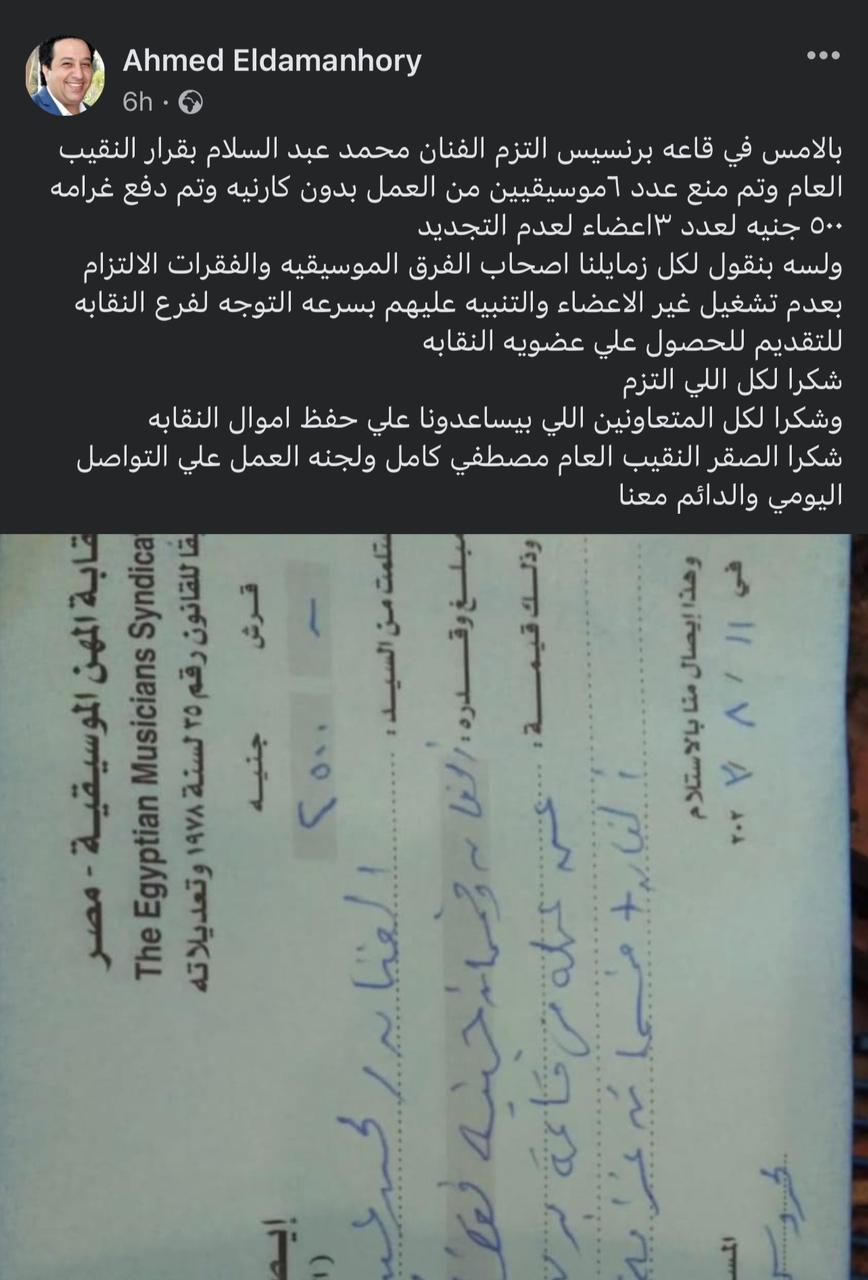 Ahmed Eldamanhory
6h
بالامس في قاعه برنسيس التزم الفنان محمد عبد السلام بقرار النقيب
العام وتم منع عدد ٦موسيقيين من العمل بدون كارنيه وتم دفع غرامه
٥٠٠ جنيه لعدد ٣اعضاء لعدم التجديد
ولسه بنقول لكل زمايلنا اصحاب الفرق الموسيقيه والفقرات الالتزام
بعدم تشغيل غير الاعضاء والتنبيه عليهم بسرعه التوجه لفرع النقابه
للتقديم للحصول علي عضويه النقابه
شكرا لكل اللي التزم
وشكرا لكل المتعاونين اللي بيساعدونا علي حفظ اموال النقابه
شكرا الصقر النقيب العام مصطفي كامل ولجنه العمل علي التواصل
اليومي والدائم معنا
قابة المهن الموسيقية - مصر
The Egyptian Musicians Syndica
قا للقانون رقم ٣٥ لسنة ١٩٧٨ وتعديلاته
قرش جنيه
٢٥٠٠
تلمت من السيد : الفنان / محمد
مبلغ وقدره : وخمسمائة جنيه فقط
وذلك قيمة : عن عمله في قاعة
+ خمسمائة غرامة
وهذا إيصال منا بالاستلام
في ١١ / ٨ / ٢٠٢